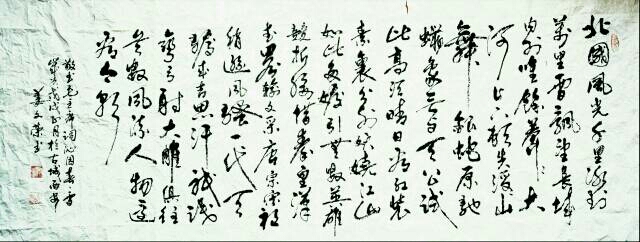 北國風光千里冰封
萬里雪飄望長城
内外惟餘莽莽大
河上下頓失滔滔山
舞銀蛇原馳
蠟象欲与天公試
比高須晴日看紅裝
素裹分外妖嬈江山
如此多嬌引無數英雄
競折腰惜秦皇漢
武略輸文采唐宗宋祖
稍遜風騷一代天
驕成吉思汗祇識
彎弓射大雕俱往
矣數風流人物還
看今朝
敬書毛主席詞沁園春雪
戊戌正月於古城西安